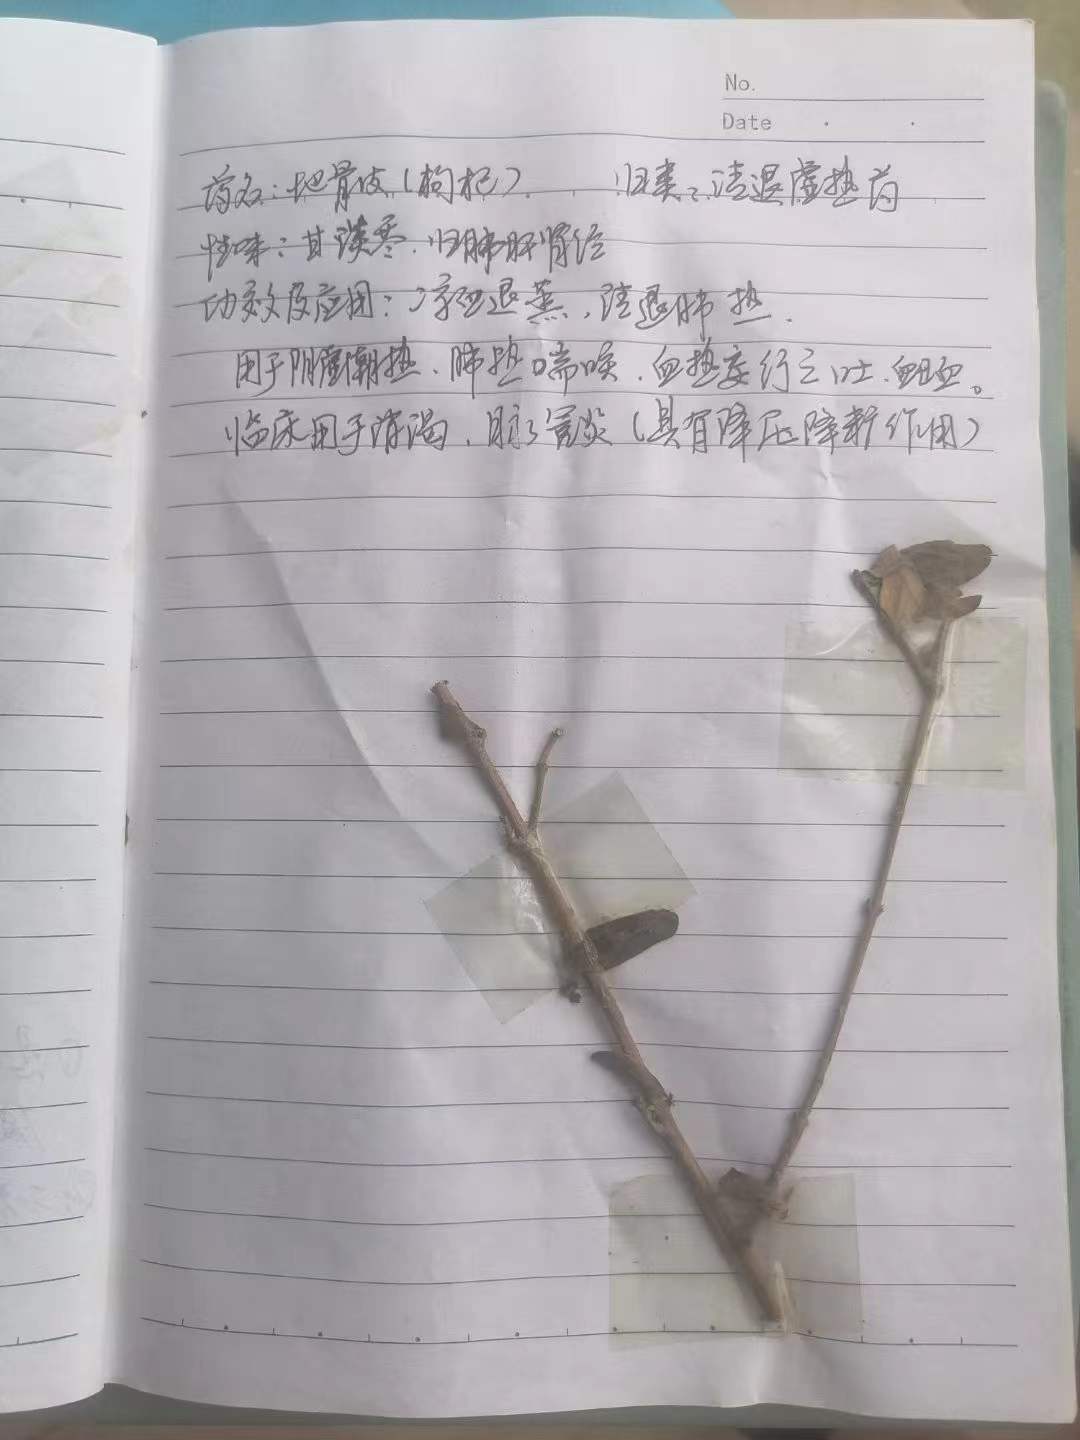 No.
Date
药名：地骨皮（枸杞）. 归类：清退虚热药
性味：甘淡寒. 归肺肝肾经
功效及应用：凉血退蒸，清退肺热.
用于阴虚潮热、肺热喘咳、血热妄行之吐、衄血。
临床用于消渴、（具有降压降 作用）